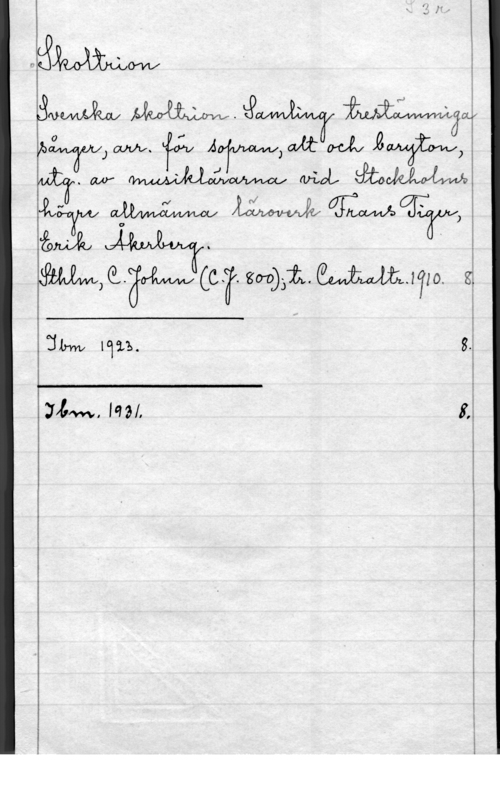 Skoltrion
Svenska skoltrion. Samling trestämmiga
sånger, arr. för sopran, alt och baryton,
utg. av musiklärarna vid Stockholms
högre allmänna läroverk Frans Tiger,
Erik Åkerberg.
Sthlm, C. Johnn (C.J. 800); tr. Centraltr. 1910. 8.
Ibm 1923. 8.
Ibm. 1931. 8.